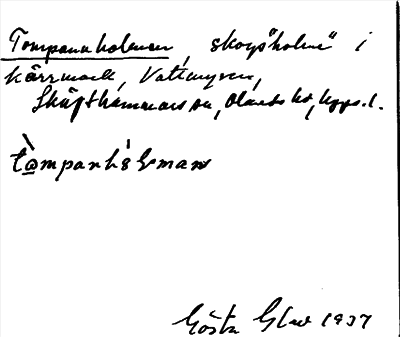 Tompannholmen, skogs"holme" i
kärrmark, Vattmyren,
Skäfthammars sn, Olands hd, Upps. l.
tòmpanhólman
Gösta Glad 1937